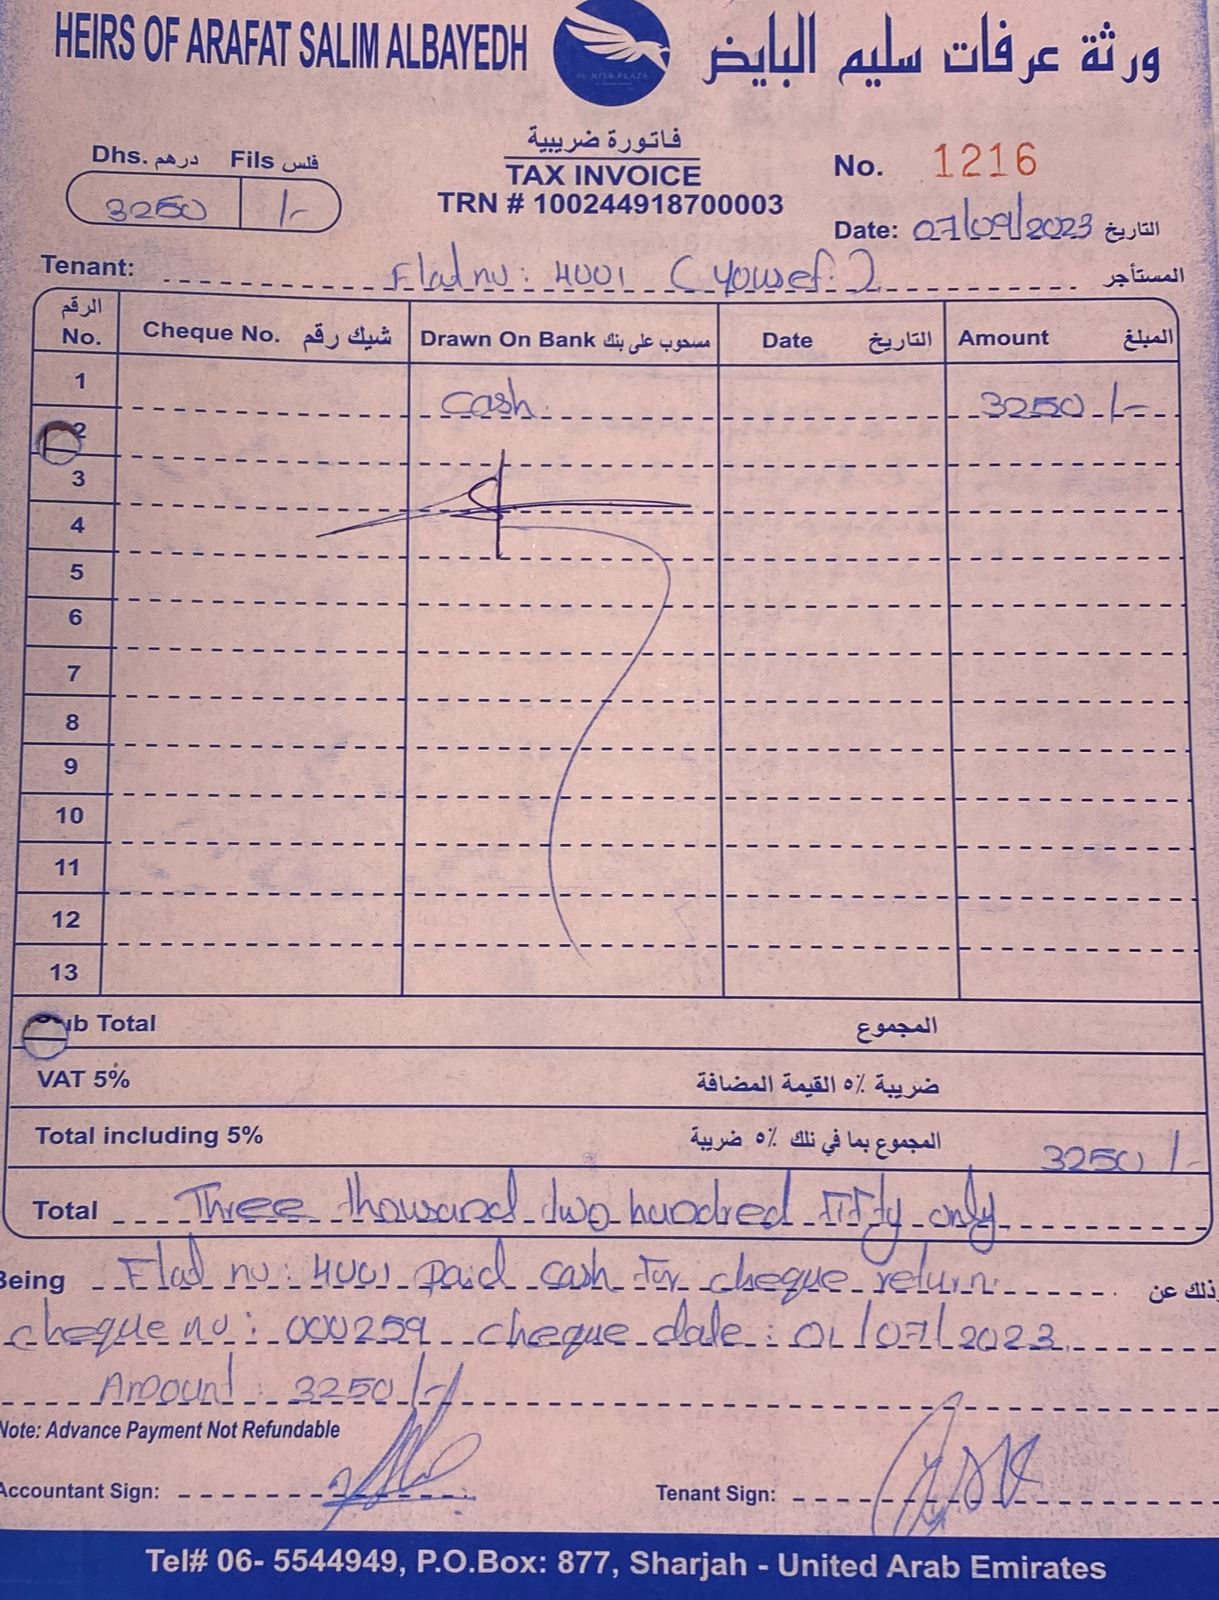 HEIRS OF ARAFAT SALIM ALBAYEDH ورثة عرفات سليم البايض
AL NISR PLAZA
فاتورة ضريبية
TAX INVOICE
TRN # 100244918700003
Dhs. درهم Fils فلس
3250 /-
No. 1216
Date: 07/09/2023 التاريخ
Tenant: Flat no: 4001 (yousef.) المستأجر
الرقم No. Cheque No. شيك رقم Drawn On Bank مسحوب على بنك Date التاريخ Amount المبلغ
1 cash. 3250 /-
2
3
4
5
6
7
8
9
10
11
12
13
Sub Total المجموع
VAT 5% ضريبة ٥٪ القيمة المضافة
Total including 5% المجموع بما في ذلك ٥٪ ضريبة 3250 /-
Total Three thousand two hundred fifty only
Being Flat no: 4001 paid cash for cheque return. وذلك عن
cheque no: 000259 cheque date: 01/07/2023
Amount: 3250/-
Note: Advance Payment Not Refundable
Accountant Sign: Tenant Sign:
Tel# 06- 5544949, P.O.Box: 877, Sharjah - United Arab Emirates